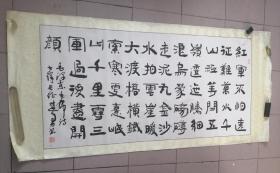 紅軍不怕遠
征難萬水千
山只等閒五
嶺逶迤騰細
浪烏蒙磅礴
走泥丸金沙
水拍雲崖暖
大渡橋橫鐵
索寒更喜岷
山千里雪三
軍過後盡開
顏
毛澤東主席詩
七律長征